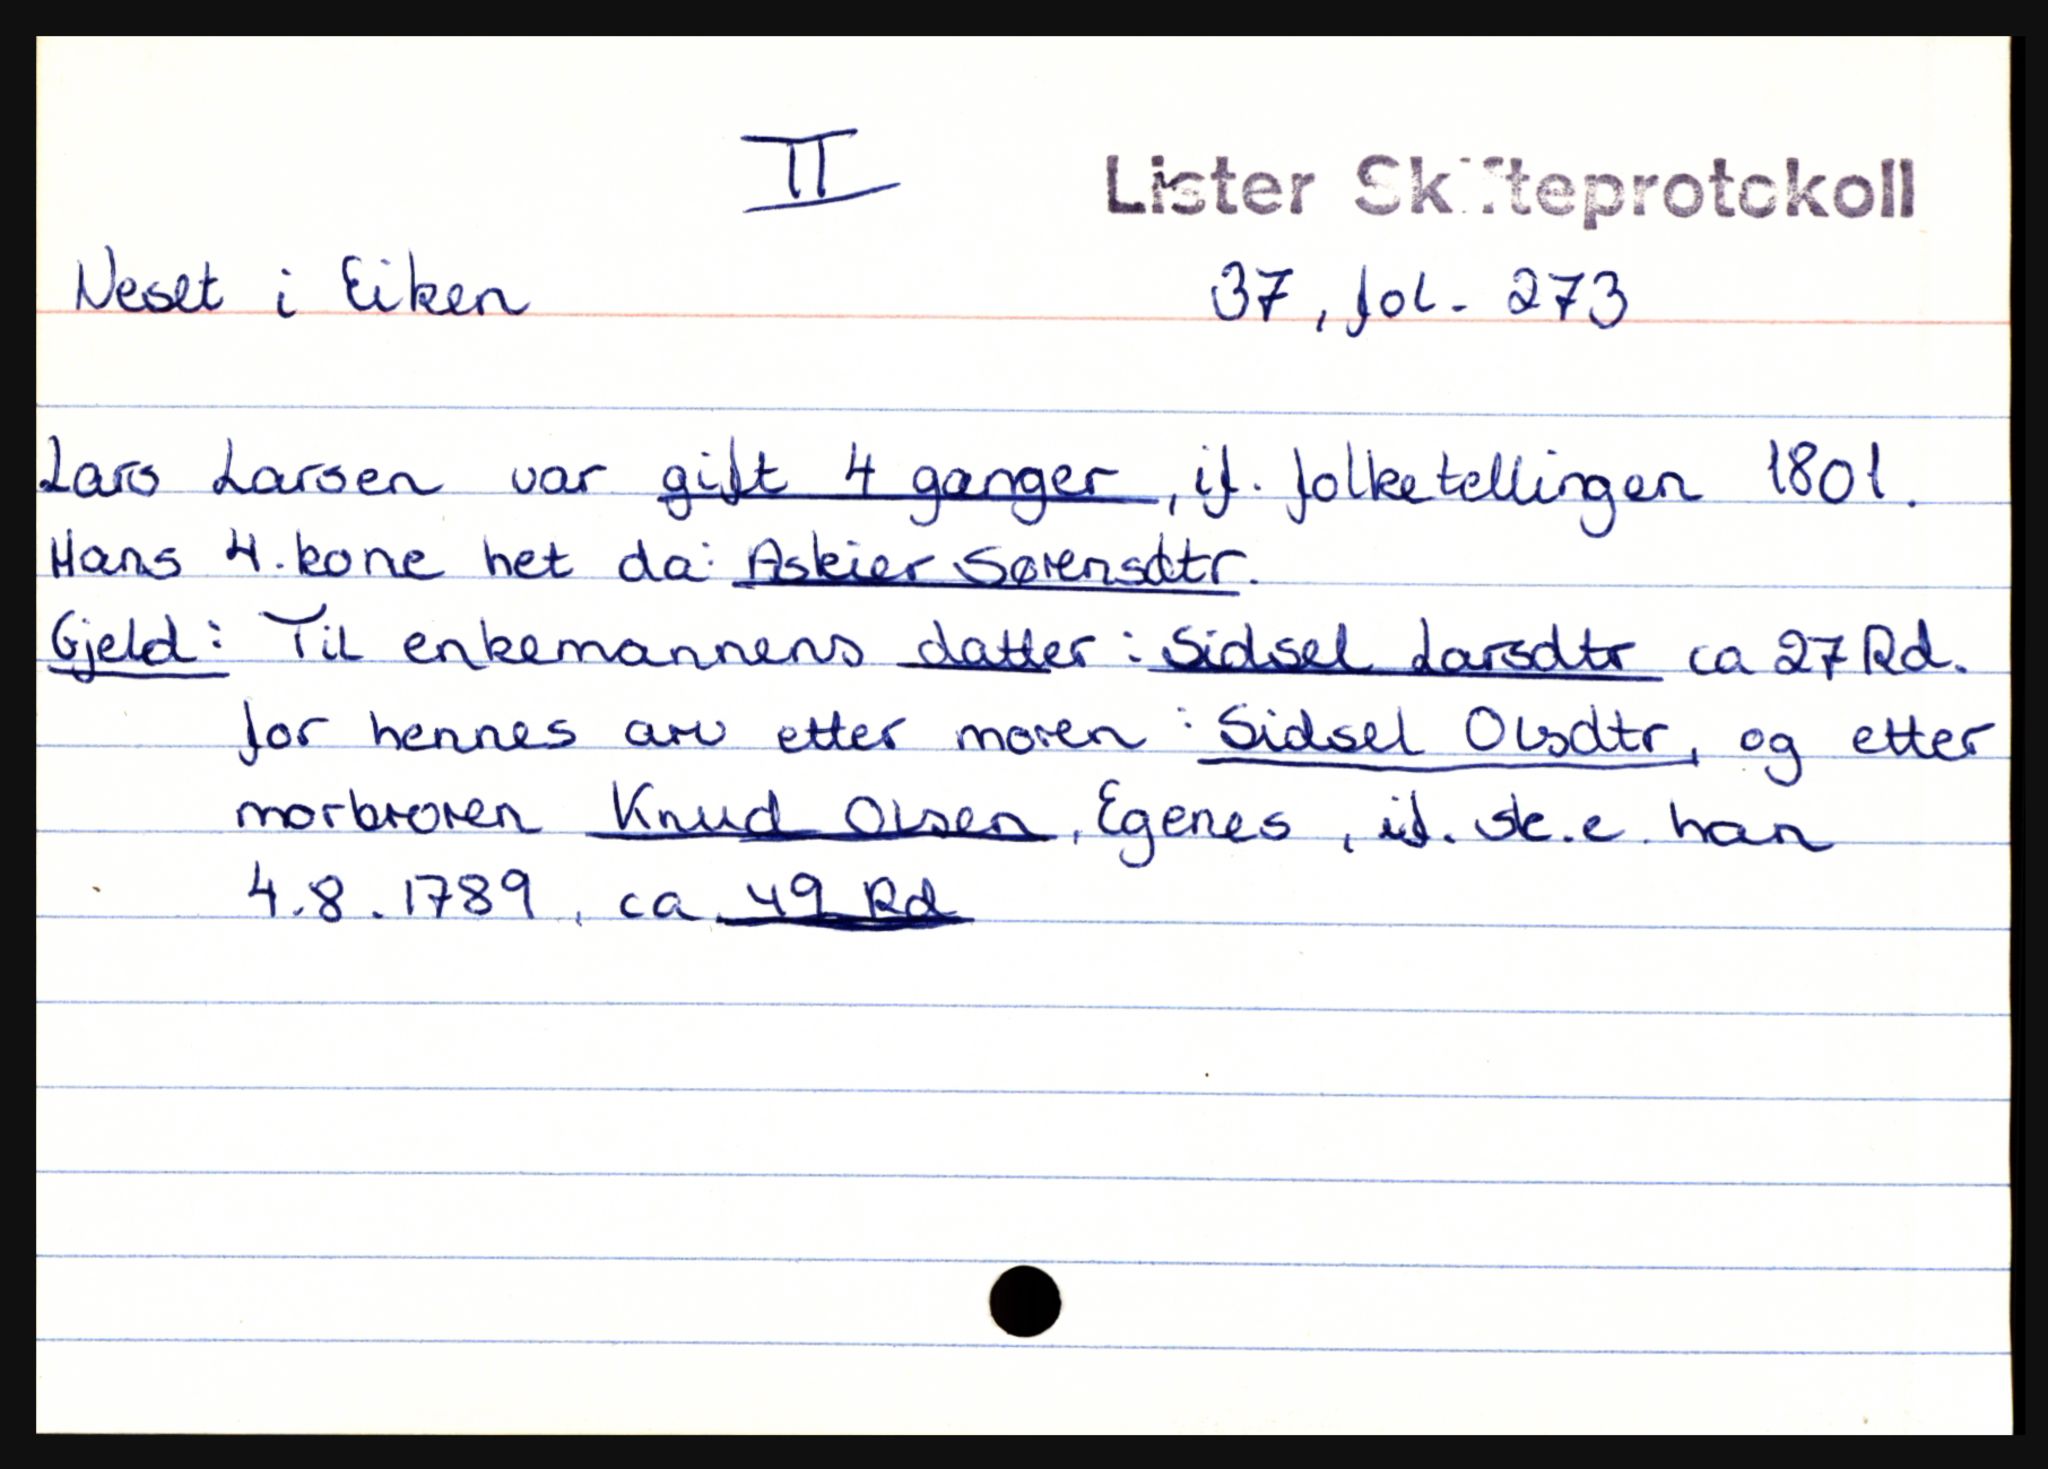 II
Lister Skifteprotokoll
Neset i Eiken 37, fol. 273
Lars Larsen var gift 4 ganger, if. folketellingen 1801.
Hans 4. kone het da: Askier Sørensdtr.
Gjeld: Til enkemannens datter: Sidsel Larsdtr ca 27 Rd.
for hennes arv etter moren: Sidsel Olsdtr, og etter
morbroren Knud Olsen, Egenes, if. sk.e. han
4.8.1789, ca 49 Rd